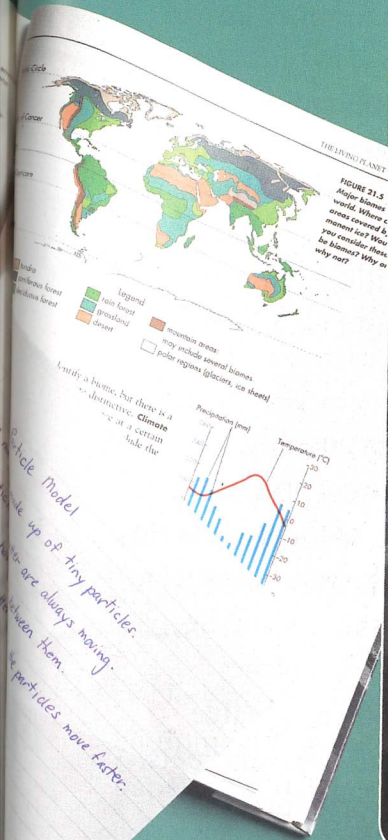 Circle
Cancer
THE LIVING PLANET
FIGURE 21.5
Major biomes
world. Where
areas covered by
manent ice? Wou
you consider these
be biomes? Why or
why not?
tundra
coniferous forest
deciduous forest
Legend
rain forest
grassland
desert
mountain areas:
may include several biomes
polar regions (glaciers, ice sheets)
a biome, but there is a
distinctive. Climate
at a certain
the
Precipitation (mm)
Temperature (°C)
30
20
10
0
-10
-20
-30
Particle Model
up of tiny particles.
are always moving.
between them.
particles move faster.